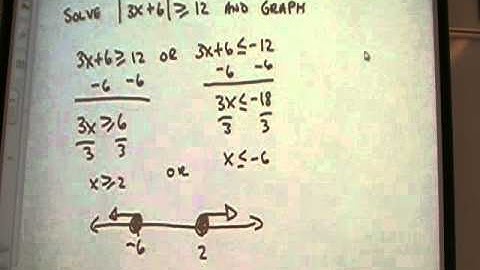 SOLVE |3x+6| ≥ 12 AND GRAPH
3x+6 ≥ 12 OR 3x+6 ≤ -12
-6 -6 -6 -6
3x ≥ 6 3x ≤ -18
3 3 3 3
x ≥ 2 OR x ≤ -6
-6 2